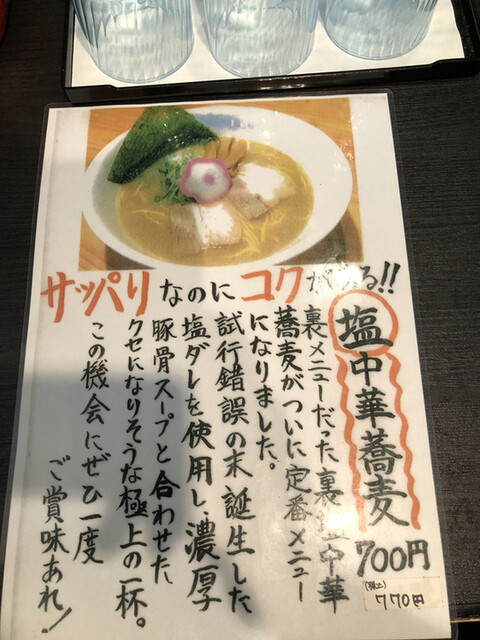 サッパリなのにコクがある!!
塩中華蕎麦
700円
(税込)
770円
裏メニューだった裏塩中華
蕎麦がついに定番メニュー
になりました。
試行錯誤の末誕生した
塩ダレを使用し、濃厚
豚骨スープと合わせた、
クセになりそうな極上の一杯。
この機会にぜひ一度
ご賞味あれ!